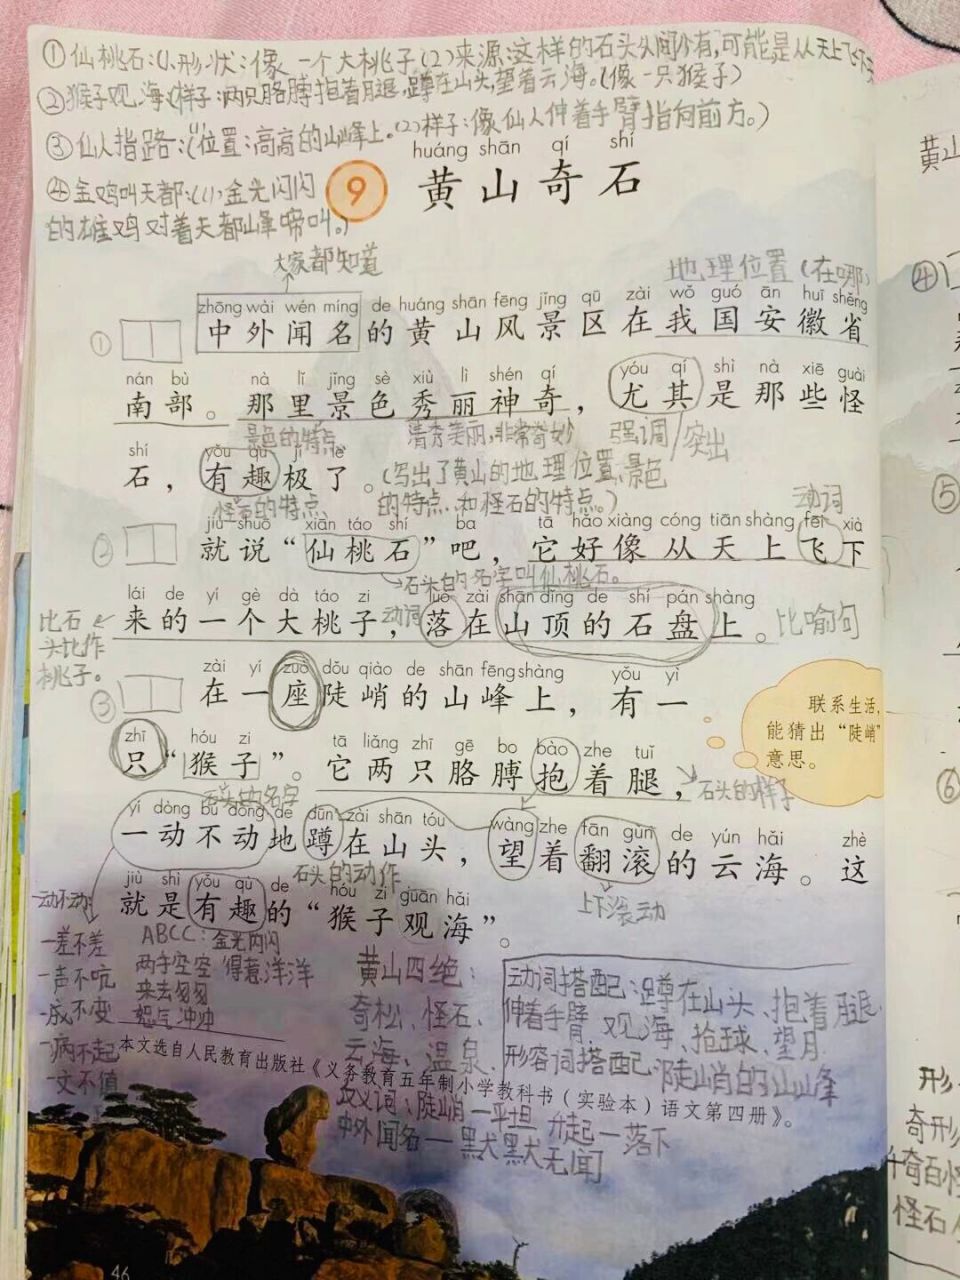 ①仙桃石:(1)形状:像一个大桃子(2)来源:这样的石头人间少有,可能是从天上飞下
②猴子观海:样子:两只胳膊抱着腿,蹲在山头,望着云海。(像一只猴子)
③仙人指路:(1)位置:高高的山峰上。(2)样子:像仙人伸着手臂指向前方。)
④金鸡叫天都:(1)金光闪闪
的雄鸡对着天都峰啼叫。)
huáng shān qí shí
9 黄山奇石
大家都知道
地理位置(在哪)
zhōng wài wén míng de huáng shān fēng jǐng qū zài wǒ guó ān huī shěng
① 中外闻名的黄山风景区在我国安徽省
nán bù nà lǐ jǐng sè xiù lì shén qí yóu qí shì nà xiē guài
南部。那里景色秀丽神奇,尤其是那些怪
景色的特点 清秀美丽,非常奇妙 强调/突出
shí yǒu qù jí le
石,有趣极了。(写出了黄山的地理位置,景色
怪石的特点 的特点,和怪石的特点。)
动词
jiù shuō xiān táo shí ba tā hǎo xiàng cóng tiān shàng fēi xià
② 就说“仙桃石”吧,它好像从天上飞下
石头的名字叫仙桃石。
lái de yí gè dà táo zi luò zài shān dǐng de shí pán shàng
来的一个大桃子,落在山顶的石盘上。
动词
比喻句
比石
头比作
桃子。
zài yí zuò dǒu qiào de shān fēng shàng yǒu yì
③ 在一座陡峭的山峰上,有一
联系生活,
能猜出“陡峭”
意思。
zhī hóu zi tā liǎng zhī gē bo bào zhe tuǐ
只“猴子”。它两只胳膊抱着腿,
石头的名字
石头的样子
yí dòng bú dòng de dūn zài shān tóu wàng zhe fān gǔn de yún hǎi zhè
一动不动地蹲在山头,望着翻滚的云海。这
石头的动作
上下滚动
jiù shì yǒu qù de hóu zi guān hǎi
就是有趣的“猴子观海”。
一动不动:
一差不差
一声不吭
一成不变
一病不起
一文不值
ABCC:金光闪闪
两手空空 得意洋洋
来去匆匆
怒气冲冲
黄山四绝:
奇松、怪石、
云海、温泉
动词搭配:蹲在山头、抱着腿、
伸着手臂 观海、抢球、望月
形容词搭配:陡峭的山峰
本文选自人民教育出版社《义务教育五年制小学教科书(实验本)语文第四册》。
反义词:陡峭—平坦 升起—落下
中外闻名—默默无闻
46
黄山
④
⑤
⑥
形
奇形
千奇百怪
怪石